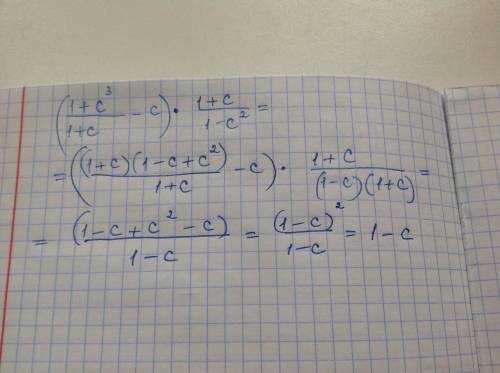 ((1+c³)/(1+c) - c) · (1+c)/(1-c²) =
= (((1+c)(1-c+c²))/(1+c) - c) · (1+c)/((1-c)(1+c)) =
= (1-c+c²-c)/(1-c) = (1-c)²/(1-c) = 1-c